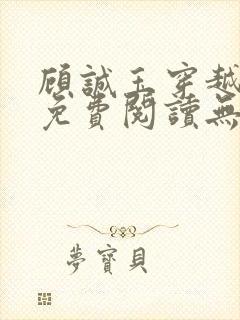 顧誠王穿越
免費閱讀無
夢寶貝